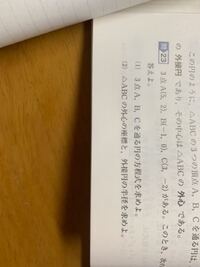 この円のように，△ABCの3つの頂点A，B，Cを通る円は，
の 外接円 であり，その中心は△ABCの 外心 である。
問23 3点A(5，2)，B(−1，0)，C(3，−2)がある。このとき，次の
答えよ。
(1) 3点A，B，Cを通る円の方程式を求めよ。
(2) △ABCの外心の座標と，外接円の半径を求めよ。